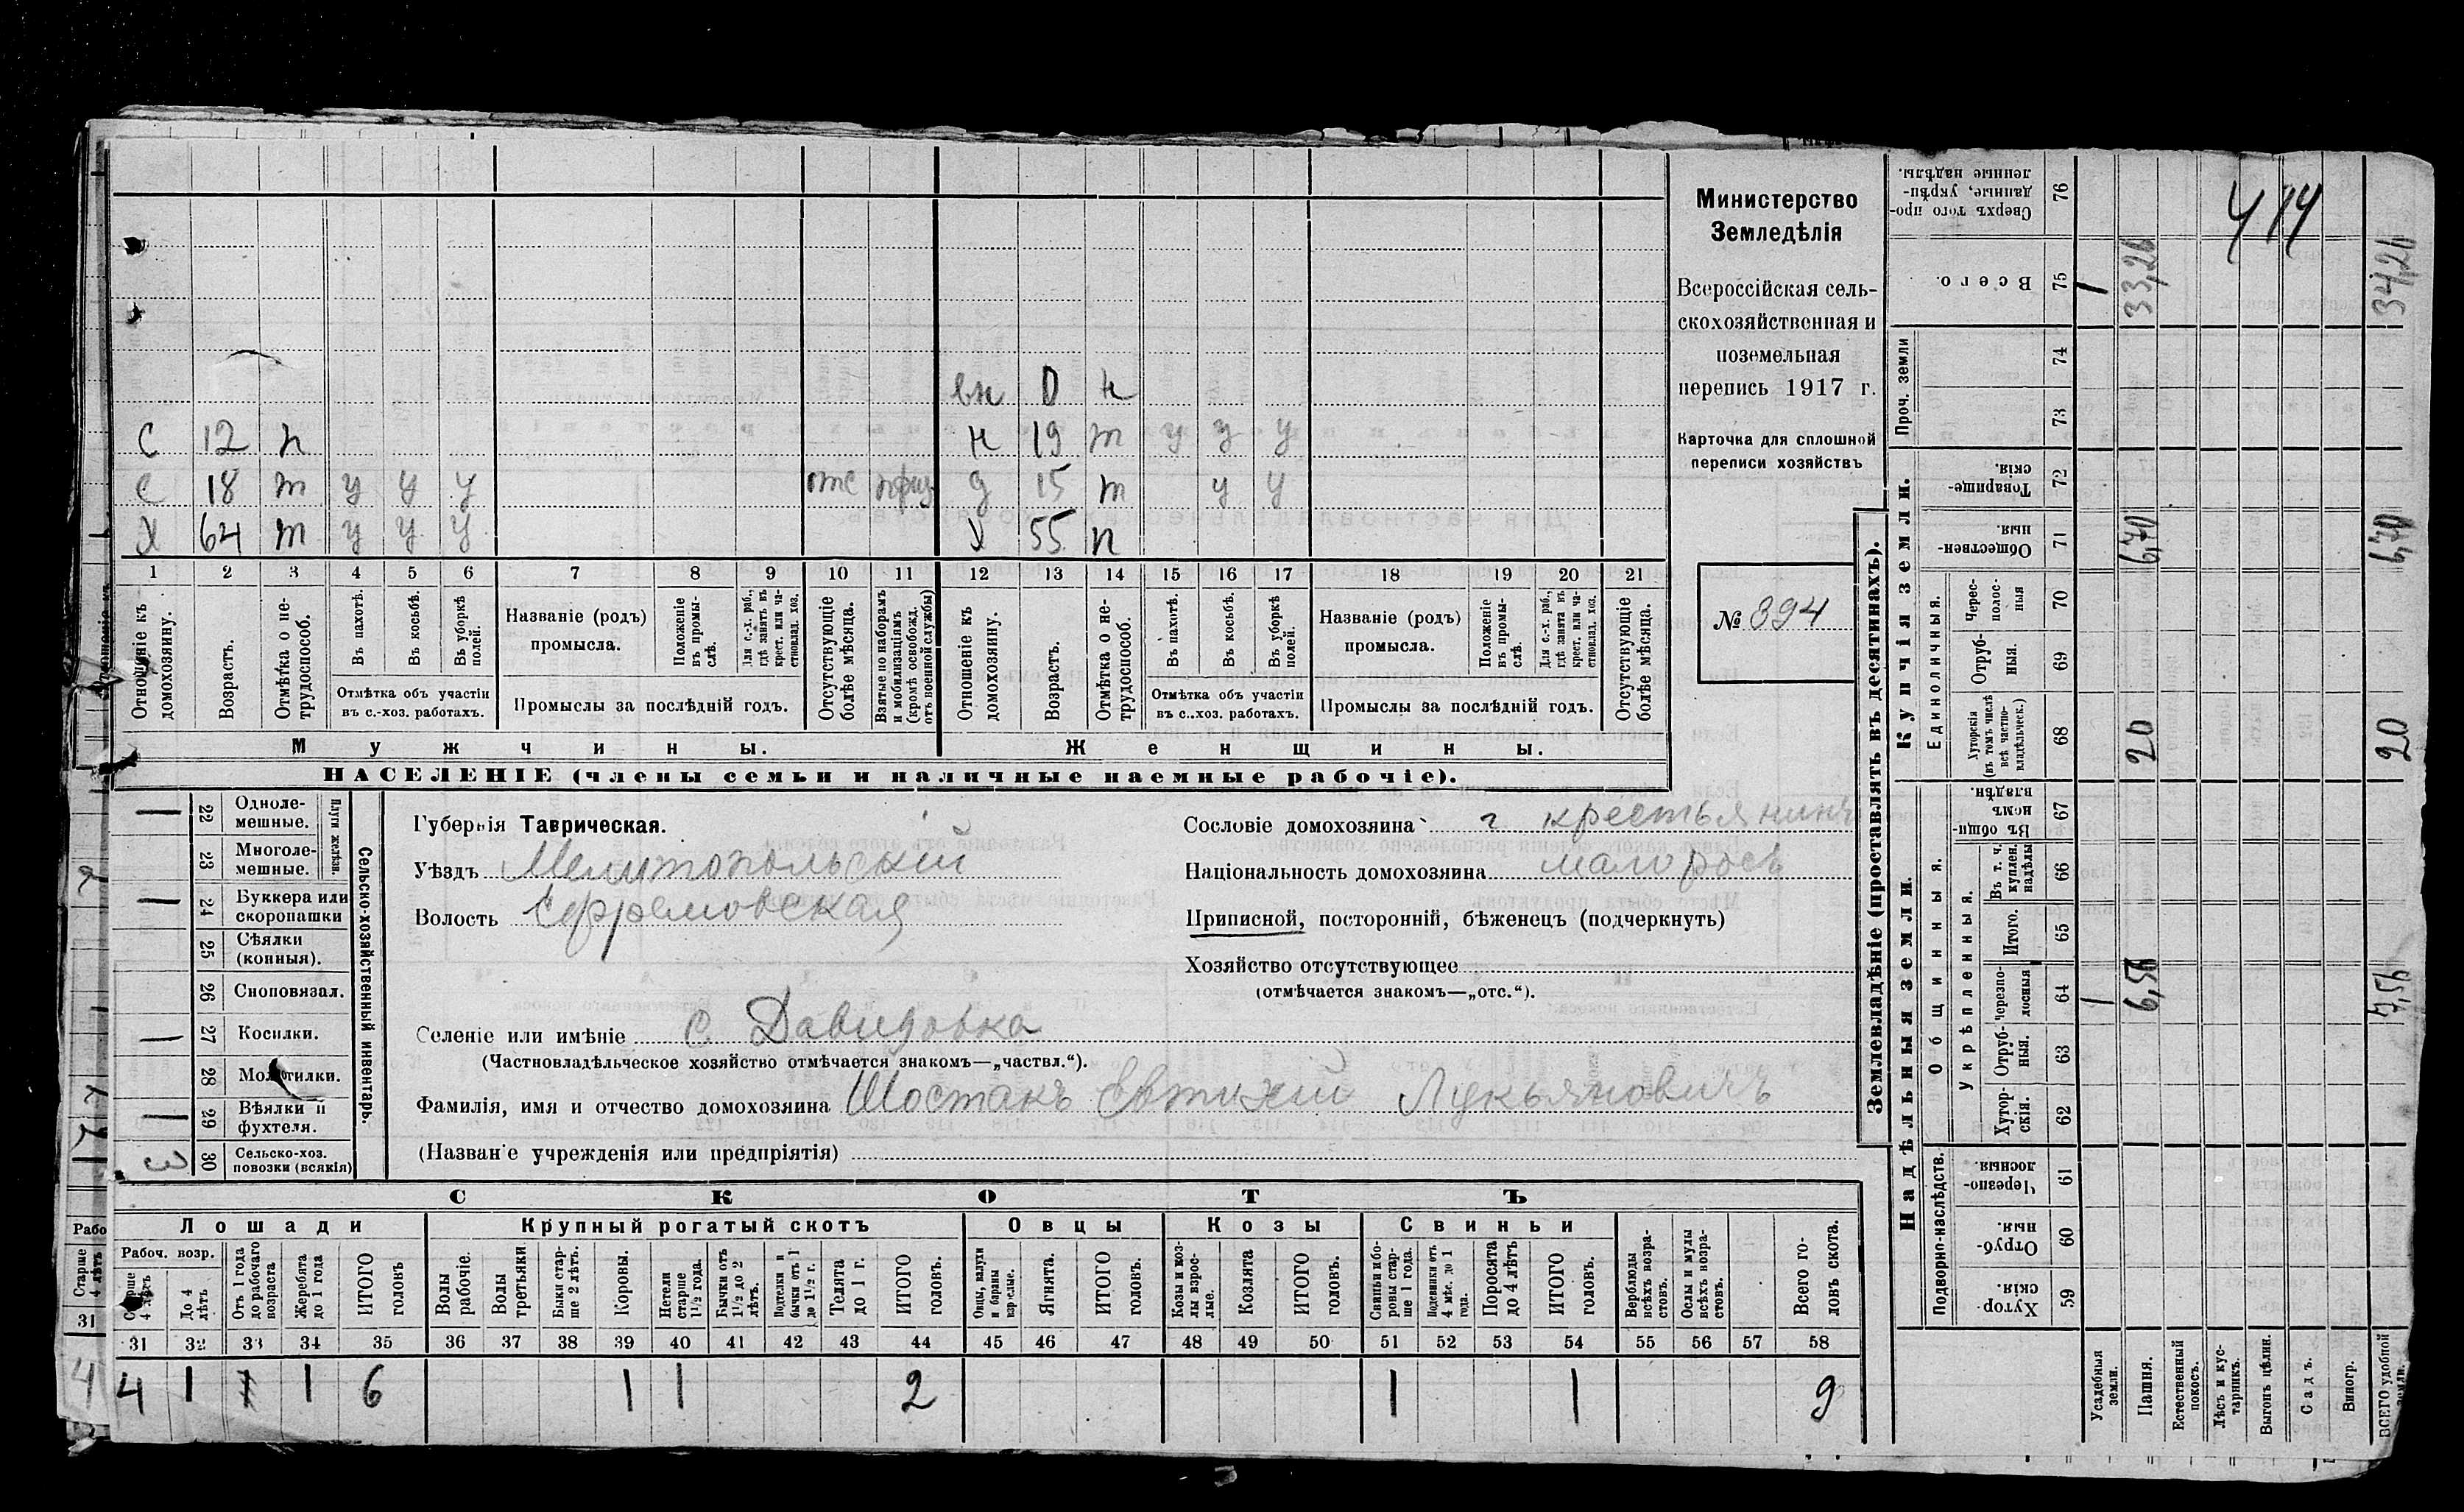 Министерство
Земледѣлія
Всероссійская сель-
скохозяйственная и
поземельная
перепись 1917 г.
Карточка для сплошной
переписи хозяйствъ
№ 394
474
вн 0 н
С 12 п н 19 т у у у
С 18 т у у у отс д 15 т у у
Х 64 т у у у Х 55 п
1 2 3 4 5 6 7 8 9 10 11 12 13 14 15 16 17 18 19 20 21
Отношеніе къ домохозяину.
Возрастъ.
Отмѣтка о не-трудоспособ.
Въ пахотѣ.
Въ косьбѣ.
Въ уборкѣ полей.
Отмѣтка объ участіи
въ с.-хоз. работахъ.
Названіе (родъ)
промысла.
Положеніе въ промы-слѣ.
Для с.-х. раб., гдѣ занятъ въ крест. или ча-стновлад. хоз.
Промыслы за послѣдній годъ.
Отсутствующіе болѣе мѣсяца.
Взятые по наборамъ и мобилизаціямъ (кромѣ освобожд. отъ военной службы)
Отношеніе къ домохозяину.
Возрастъ.
Отмѣтка о не-трудоспособ.
Въ пахотѣ.
Въ косьбѣ.
Въ уборкѣ полей.
Отмѣтка объ участіи
въ с.-хоз. работахъ.
Названіе (родъ)
промысла.
Положеніе въ промы-слѣ.
Для с.-х. раб., гдѣ занята въ крест. или ча-стновлад. хоз.
Промыслы за послѣдній годъ.
Отсутствующіе болѣе мѣсяца.
Мужчины. Женщины.
НАСЕЛЕНІЕ (члены семьи и наличные наемные рабочіе).
Сельско-хозяйственный инвентарь.
Плуги желѣзн.
1 22 Одноле-мешные.
23 Многоле-мешные.
1 24 Буккера или скоропашки
25 Сѣялки (конныя).
26 Сноповязал.
1 27 Косилки.
28 Молотилки.
1 29 Вѣялки и фухтеля.
3 30 Сельско-хоз. повозки (всякія)
Губернія Таврическая.
Уѣздъ Мелитопольскій
Волость Ефремовская
Селеніе или имѣніе с. Давидовка
(Частновладѣльческое хозяйство отмѣчается знакомъ—„частвл.“).
Фамилія, имя и отчество домохозяина Шостакъ Евтихій Лукьяновичъ
(Названіе учрежденія или предпріятія)
Сословіе домохозяина крестьянинъ
Національность домохозяина малоросъ
Приписной, посторонній, бѣженецъ (подчеркнуть)
Хозяйство отсутствующее
(отмѣчается знакомъ—„отс.“).
СКОТЪ
Лошади Крупный рогатый скотъ Овцы Козы Свиньи
Рабоч. возр.
Старше 4 лѣтъ
До 4 лѣтъ
Отъ 1 года до рабочаго возраста
Жеребята до 1 года
ИТОГО головъ
Волы рабочіе.
Волы третьяки
Быки стар-ше 2 лѣтъ.
Коровы.
Нетели старше 1½ года.
Бычки отъ 1½ до 2 лѣтъ.
Подтелки и бычки отъ 1 до 1½ г.
Телята до 1 г.
ИТОГО головъ.
Овцы, валухи и бараны взрослые.
Ягнята.
ИТОГО головъ.
Козы и коз-лы взрос-лые.
Козлята
ИТОГО головъ.
Свиньи и бо-ровы стар-ше 1 года.
Подсвинки отъ 4 мѣс. до 1 года.
Поросята до 4 лѣтъ
ИТОГО головъ.
Верблюды всѣхъ возра-стовъ.
Ослы и мулы всѣхъ возра-стовъ.
Всего го-ловъ скота.
31 32 33 34 35 36 37 38 39 40 41 42 43 44 45 46 47 48 49 50 51 52 53 54 55 56 57 58
4 1 1 6 1 1 2 1 1 9
Рабо
Старше 4 лѣтъ
31
4
Землевладѣніе (проставлять въ десятинахъ).
Купчія земли.
Надѣльныя земли.
Сверхъ того про-данные, укрѣп-ленные надѣлы. 76
Всего. 75 1 33,26 34,26
Проч. земли 74
73
Товарище-скія. 72
Обществен-ныя. 71 6,70 6,70
Единоличныя.
Черес-полос-ныя 70
Отруб-ныя. 69
Хуторскія (въ томъ числѣ всѣ частно-владѣльческ.) 68 20 20
Общинныя.
Въ общи-номъ владѣн. 67
Укрѣпленныя.
Въ т. ч. куплен. надѣлы 66
Итого. 65
Черезпо-лосныя 64 1 6,56 7,56
Отруб-ныя. 63
Хутор-скія. 62
Подворно-наслѣдств.
Черезпо-лосныя. 61
Отруб-ныя. 60
Хутор-скія. 59
Усадебныя земли.
Пашня.
Естественный покосъ.
Лѣсъ и кус-тарникъ.
Выгонъ цѣлин.
Садъ.
Виногр.
ВСЕГО удобной земли.